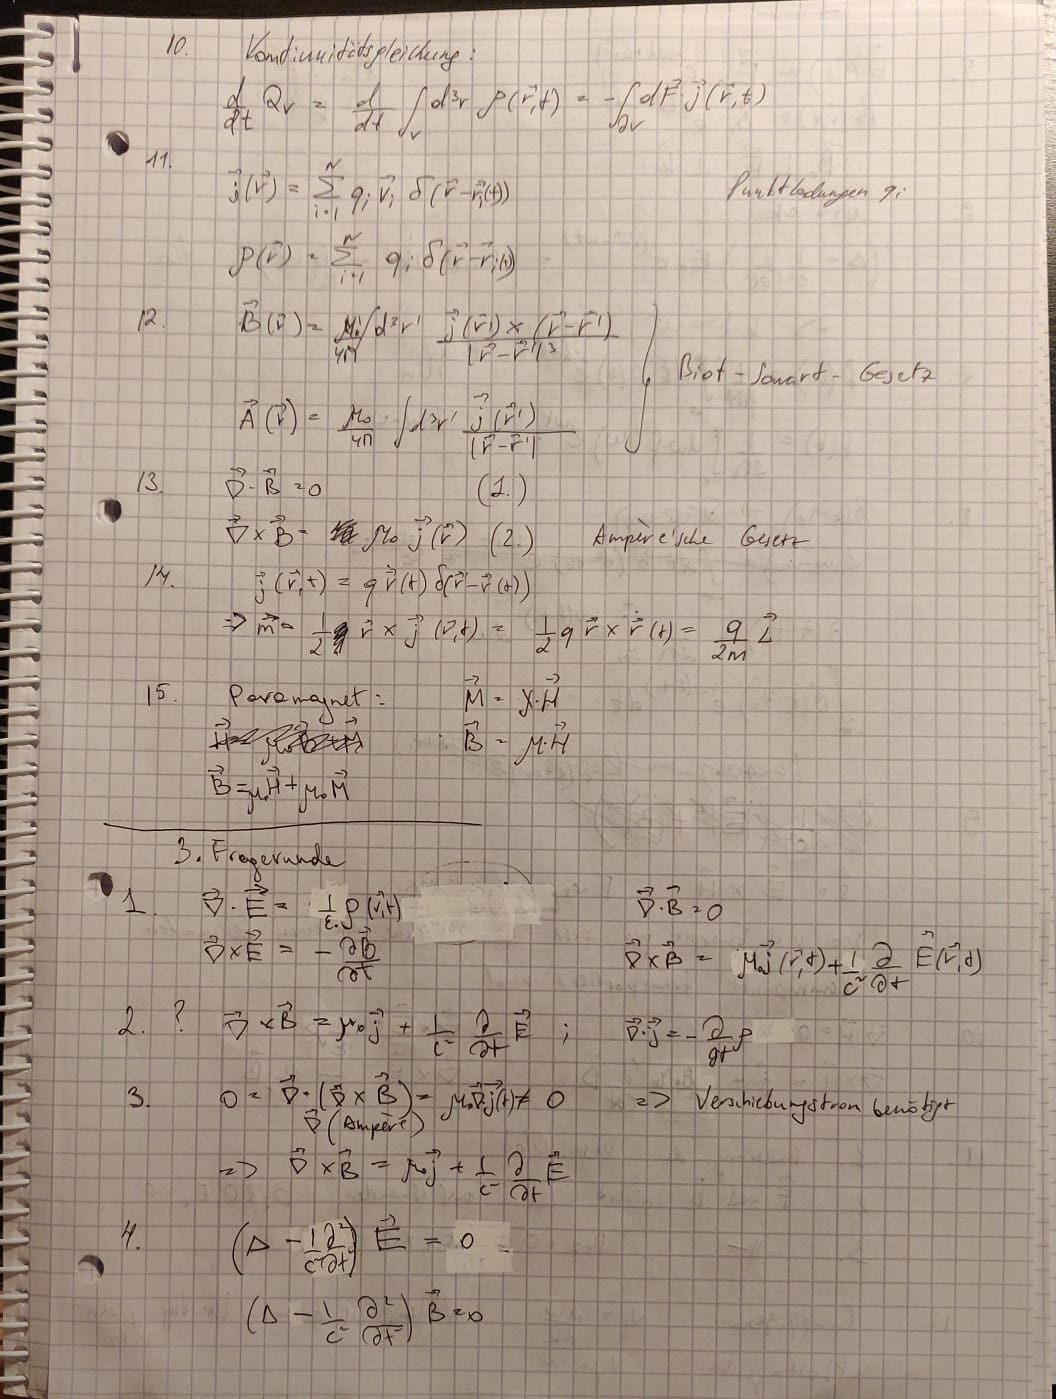 10. Kontinuitätsgleichung:
d/dt Q_V = d/dt ∫_V d³r ρ(r⃗,t) = -∫_∂V dF⃗ j⃗(r⃗,t)
11.
j⃗(r⃗) = Σ_{i=1}^N q_i v⃗_i δ(r⃗-r⃗_i(t)) Punktladungen q_i
ρ(r⃗) = Σ_{i=1}^N q_i δ(r⃗-r⃗_i(t))
12. B⃗(r⃗) = μ₀/4π ∫d³r' j⃗(r⃗')×(r⃗-r⃗')/|r⃗-r⃗'|³
} Biot-Savart-Gesetz
A⃗(r⃗) = μ₀/4π ∫d³r' j⃗(r⃗')/|r⃗-r⃗'|
13. ∇⃗·B⃗ = 0 (1.)
∇⃗×B⃗ = μ₀ j⃗(r⃗) (2.) Ampère'sche Gesetz
14. j⃗(r⃗,t) = q ṙ⃗(t) δ(r⃗-r⃗(t))
=> m⃗ = 1/2 r⃗ × j⃗(r⃗,t) = 1/2 q r⃗ × ṙ⃗(t) = q/2m L⃗
15. Paramagnet: M⃗ = χ·H⃗
B⃗ = μ·H⃗
B⃗ = μ₀H⃗ + μ₀M⃗
3. Fragerunde
1. ∇⃗·E⃗ = 1/ε₀ ρ(r⃗,t) ∇⃗·B⃗ = 0
∇⃗×E⃗ = -∂B⃗/∂t ∇⃗×B⃗ = μ₀j⃗(r⃗,t) + 1/c² ∂/∂t E⃗(r⃗,t)
2. ? ∇⃗×B⃗ = μ₀j⃗ + 1/c² ∂/∂t E⃗ ; ∇⃗·j⃗ = -∂/∂t ρ
3. 0 = ∇⃗·(∇⃗×B⃗) = μ₀∇⃗j⃗(t) ≠ 0 => Verschiebungsstrom benötigt
∇⃗(Ampère)
=> ∇⃗×B⃗ = μ₀j⃗ + 1/c² ∂/∂t E⃗
4. (Δ - 1/c² ∂²/∂t²) E⃗ = 0
(Δ - 1/c² ∂²/∂t²) B⃗ = 0